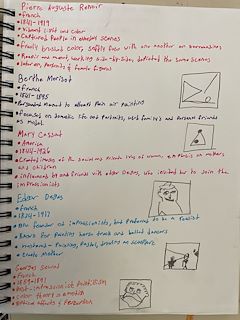 Pierre Auguste Renoir
• French
• 1841-1919
• Vibrant light and color
• Captured People in everyday scenes
• Freely brushed color, softly fuse with one another or surroundings
• Renoir and monet, working side-by-side, depicted the same scenes
• Later on, Portraits, & female figures
Berthe Morisot
• French
• 1841-1895
• Persuaded Manet to attempt Plein air painting
• focuses on domestic life and Portraits, with family and Personal friends
as models
Mary Cassatt
• America
• 1844-1926
• Created images of the social and private lives of women, emphasis on mothers
and children
• influenced by and friends with other Degas, who invited her to join the
impressionists
Edgar Degas
• French
• 1834-1917
• A founder of impressionists, but preferred to be a realist
• Known for Painting horse track and ballet dancers
• Mediums - Painting, Pastel, drawing and sculpture
• Mother
Georges Seurat
• French
• 1859-1891
• Post-impressionist Pointillism
• Color theory & emotion
• Optical effects & Perception